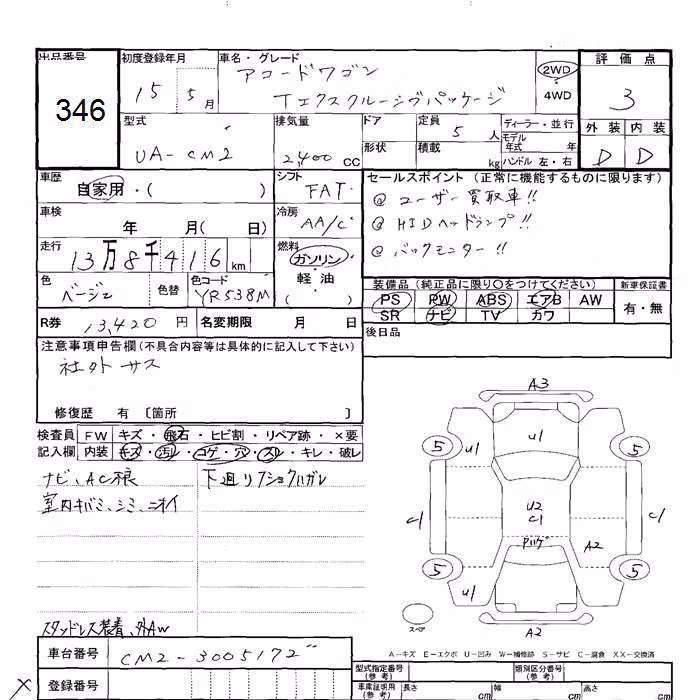 出品番号 初度登録年月 車名・グレード 評価点
346 15 5月 アコードワゴン 2WD 3
Tエクスクルーシヴパッケージ 4WD
型式 排気量 ドア 定員 5人 ディーラー・並行 外装 内装
モデル年式 年
UA-CM2 2,400CC 形状 積載 kg ハンドル 左・右 D D
車歴 自家用・( ) シフト FAT セールスポイント (正常に機能するものに限ります)
@ユーザー買取車!!
車検 年 月( 日) 冷房 AA/C @HIDヘッドランプ!!
走行 13万8千416km 燃料 ガソリン・軽油 ( ) @バックモニター!!
色 ベージュ 色替 色コード YR538M 装備品 (純正品に限り○をつけてください) 新車保証書
PS PW ABS エアB AW 有・無
SR ナビ TV カワ
R券 13,420円 名変期限 月 日 後日品
注意事項申告欄(不具合内容等は具体的に記入して下さい)
社外サス
修復歴 有 〔箇所 〕
検査員 FW キズ・飛石・ヒビ割・リペア跡・×要
記入欄 内装 キズ・汚れ・コゲ・穴・スレ・キレ・破レ
ナビ、AC根 下廻リ
室内キバミ、シミ、ニオイ
スタッドレス装着、外AW
A3
5 U1 U1 5
C1 U2 C1 C1
A2
5 U1 5
スペア A2
A-キズ E-エクボ U-凹み W-補修跡 S-サビ C-腐食 XX-交換済
車台番号 CM2-3005172
型式指定番号 (参考) 類別区分番号 (参考)
X 登録番号 車庫証明用 (参考) 長さ cm 幅 cm 高さ cm